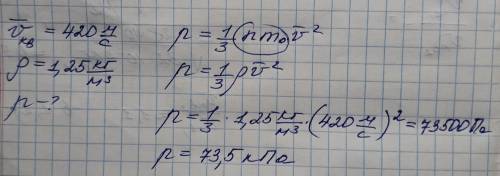 v̅кв = 420 м/с
ρ = 1,25 кг/м³
p - ?
p = 1/3 nm₀ v̅²
p = 1/3 ρ v̅²
p = 1/3 · 1,25 кг/м³ · (420 м/с)² = 73500 Па
p = 73,5 кПа